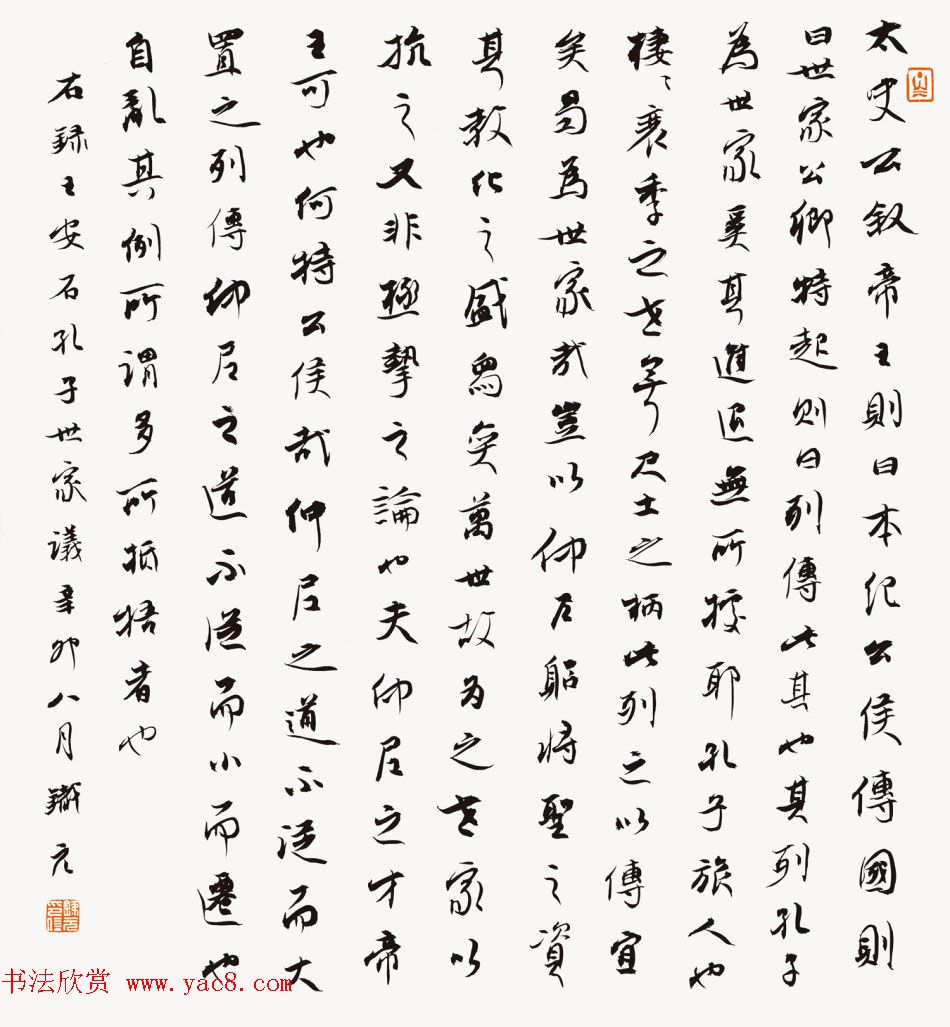 太史公叙帝王則曰本紀公侯傳國則
曰世家公卿特起则曰列傳此其也其列孔子
為世家奚其進退無所據耶孔子旅人也
棲〻衰季之世無尺土之柄此列之以傳宜
矣曷為世家哉豈以仲尼躬將聖之資
其教化之盛舄奕萬世故為之世家以
抗之又非極摯之論也夫仲尼之才帝
王可也何特公侯哉仲尼之道不從而大
置之列傳仲尼之道不從而小而遷也
自亂其例所謂多所抵牾者也
右録王安石孔子世家議辛卯八月
书法欣赏 www.yac8.com